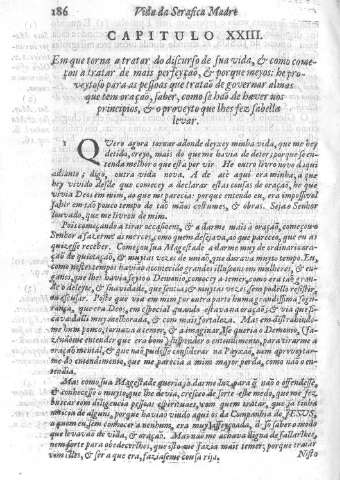 186 Vida da Serafica Madre
CAPITULO XXIII.
Em que torna a tratar do discurso de sua vida, & como come-
çou a tratar de mais perfeyção, & porque meyos: he pro-
veytoso para as pessoas que tratão de governar almas
que tem oração, saber, como se hão de haver nos
principios, & o proveyto que lhes fez sabella
levar.
1 QVero agora tornar adonde deyxey minha vida, que me hey
detido, creyo, mais do que me havia de deter; porque se en-
tenda melhor o que està por vir. He outro livro novo daqui
adiante; digo, outra vida nova. A de atè aqui era minha, a que
hey vivido desde que comecey a declarar estas cousas de oração, he que
vivia Deos em mim, ao que me parecia: porque entendo eu, era impossivel
sahir em tão pouco tempo de tão màos costumes, & obras. Seja o Senhor
louvado, que me livrou de mim.
Pois começando a tirar occasioens, & a darme mais a oração, começou o
Senhor a fazerme as mercès, como quem desejava, ao que pareceo, que eu as
quizesse receber. Começou sua Magestade a darme muy de ordinario ora-
ção de quietação, & muytas vezes de união, que durava muyto tempo. Eu,
como nestes tempos havião acontecido grandes illusoens em mulheres, & en-
ganos, que lhes havia feyto o Demonio, comecey a temer, como era tão gran-
de o deleyte, & suavidade, que sentia, & muytas vezes, sem podello resistir,
ou escusar. Posto que via em mim por outra parte huma grandissima segu-
rança, que era Deos, em especial quando estava na oração; & via que fi-
cava dalli muy melhorada, & com mais fortaleza. Mas em distrahindo-
me hum pouco, tornava a temer; & a imaginar, se queria o Demonio, (fa-
zendome entender que era bom) suspender o entendimento, para tirarme a
oração mental, & que não pudesse considerar na Payxão, nem aproveytar-
me do entendimento, que me parecia a mim mayor perda, como não o en-
tendia.
Mas como sua Magestade queria jà darme luz, para q̃ não o offendesse,
& conhecesse o muyto que lhe devia, cresceo de sorte este medo, que me fez
buscar com diligencia pessoas espirituaes, com quem tratar, que jà tinha
noticia de alguns, porque havião vindo aqui os da Companhia de JESUS,
a quem eu, sem conhecer a nenhum, era muy affeyçoada, de só saber o modo
que levavão de vida, & oração. Mas não me achava digna de fallarlhes,
nem forte para obedecerlhes, que isto me fazia mais temer; porque tratar
com elles, & ser a que era, faziaseme cousa rija.
Nisto